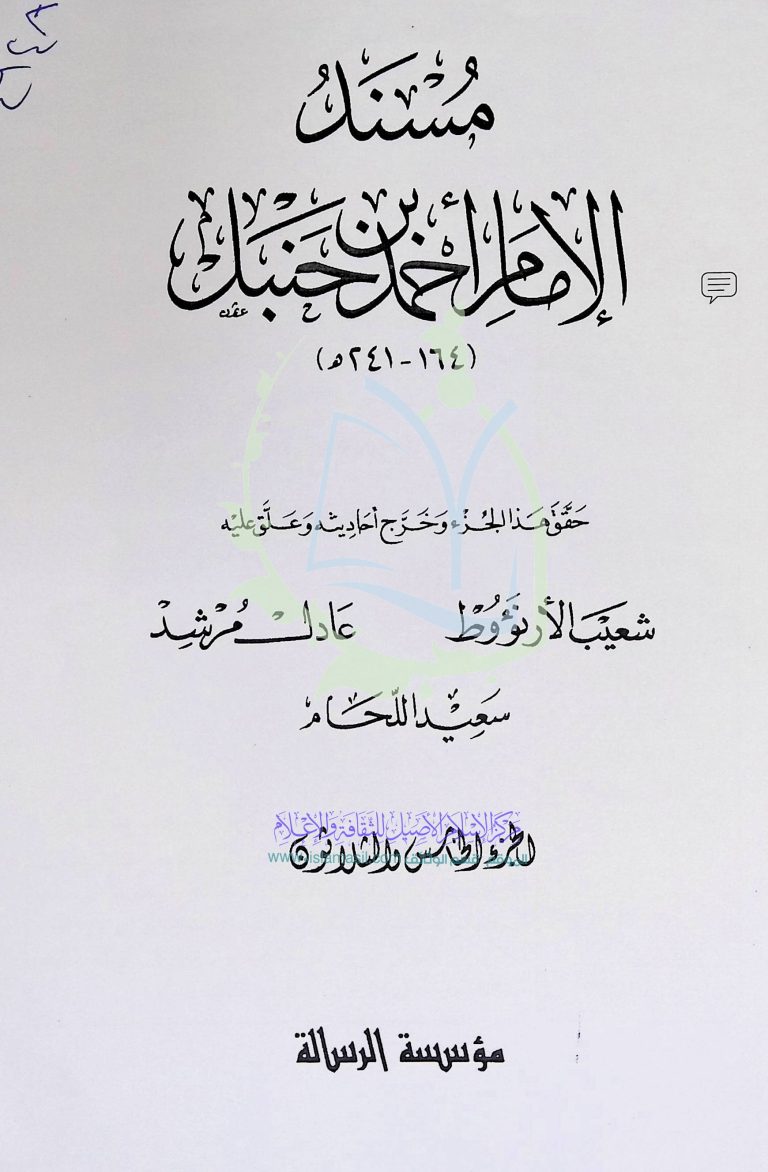 مُسْنَدُ
الإمَامِ أَحْمَد بن حَنْبَل
(١٦٤ - ٢٤١ هـ)
حَقَّقَ هَذا الجُزْء وَخَرَّج أحَادِيثه وَعَلَّق عليْه
شعَيْب الأرنَؤُوْط عَادل مُرْشِد
سَعِيْد اللّحَام
مركز الإسلام الأصيل للثقافة والإعلام
الجزء الخامس والثلاثون
www.islamasil.com
مؤسسة الرسالة